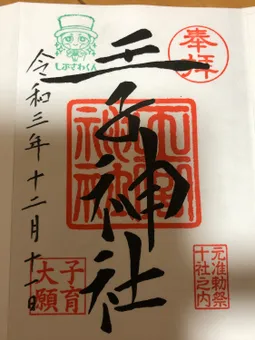 奉拝
王子神社
しぶさわくん
令和三年十二月十一日
元准勅祭
十社之内
子育
大願